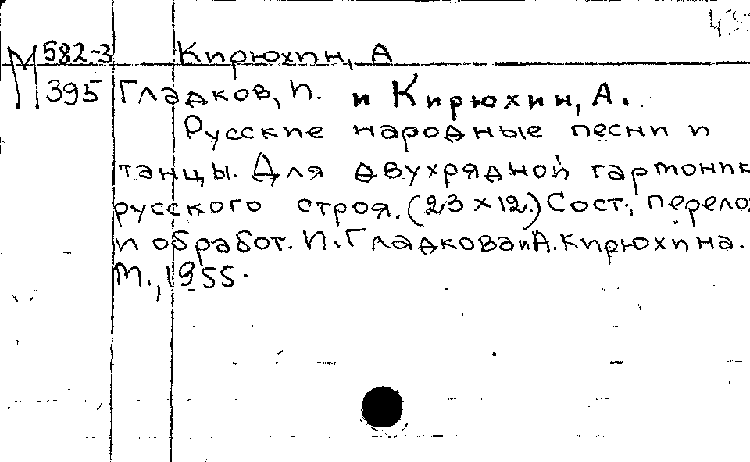 М 582-3 Кирюхин, А
395 Гладков, П. и Кирюхин, А.
Русские народные песни и
танцы. Для двухрядной гармоник
русского строя. (23 x 12.) Сост., перелож
и обработ. П. Гладкова и А. Кирюхина.
М., 1955.